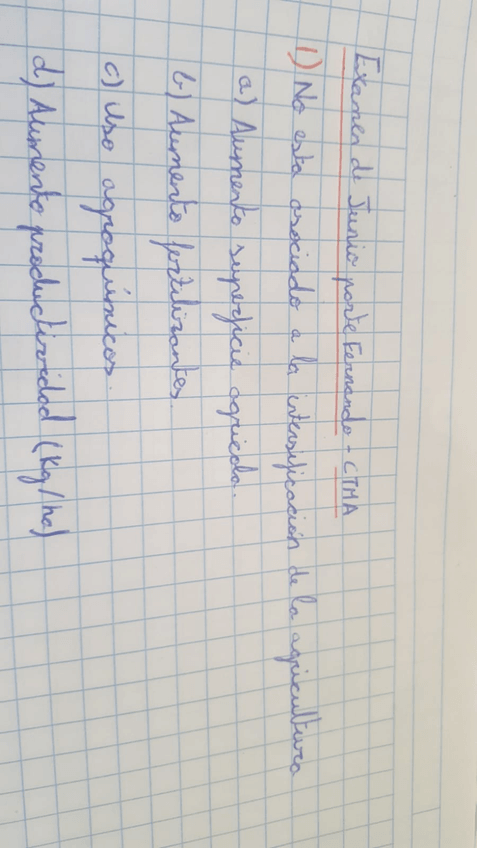 Examen de Junio parte Fernando - CTMA
1) No esta asociado a la intensificación de la agricultura
a) Aumento superficie agricola.
b) Aumento fertilizantes.
c) Uso agroquímicos.
d) Aumento productividad (Kg/ha)